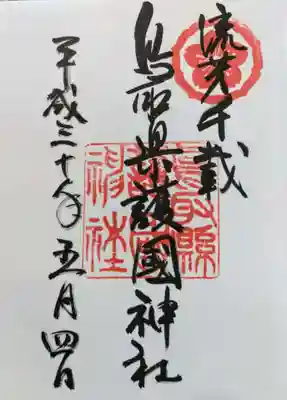 流芳千載
鳥取県護國神社
平成三十年五月四日
鳥取縣
護國
神社